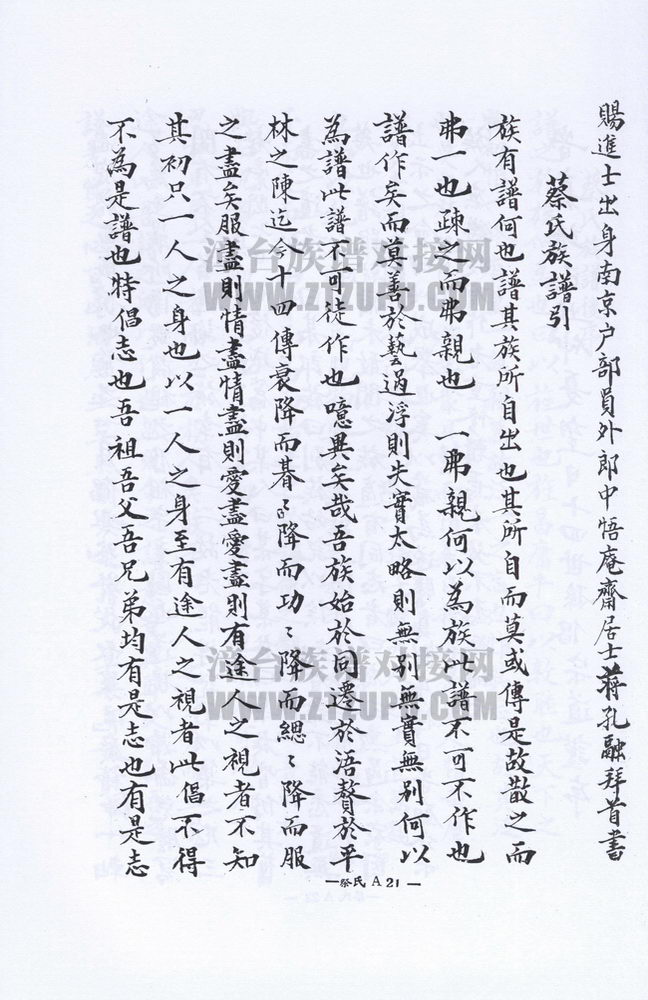 賜進士出身南京户部員外郎中悟庵齋居士蔣孔融拜首書
蔡氏族譜引
族有譜何也譜其族所自出也其所自而莫或傳是故散之而
弗一也疎之而弗親也一弗親何以為族此譜不可不作也
譜作矣而莫善於藝過浮則失實太略則無別無實無別何以
為譜此譜不可徒作也噫異矣哉吾族始於同遷於浯贅於平
林之陳迄今十四傳衰降而朞〻降而功〻降而緦〻降而服
之盡矣服盡則情盡情盡則愛盡愛盡則有途人之視者不知
其初只一人之身也以一人之身至有途人之視者此倡不得
不為是譜也特倡志也吾祖吾父吾兄弟均有是志也有是志
—蔡氏 A 21 —
漳台族谱对接网
WWW.ZTZUPU.COM
漳台族谱对接网
WWW.ZTZUPU.COM